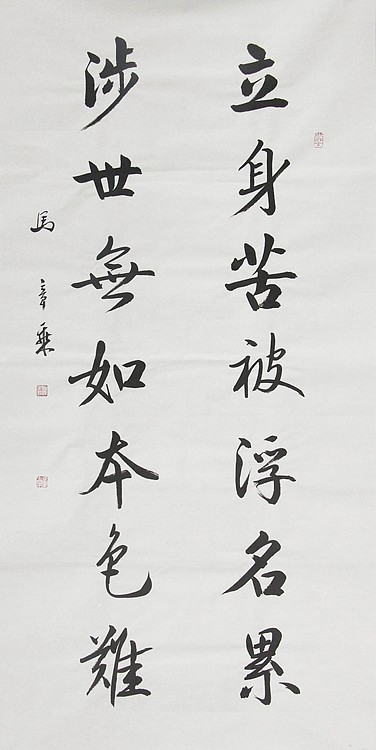 立身苦被浮名累
涉世無如本色難
馬章乘